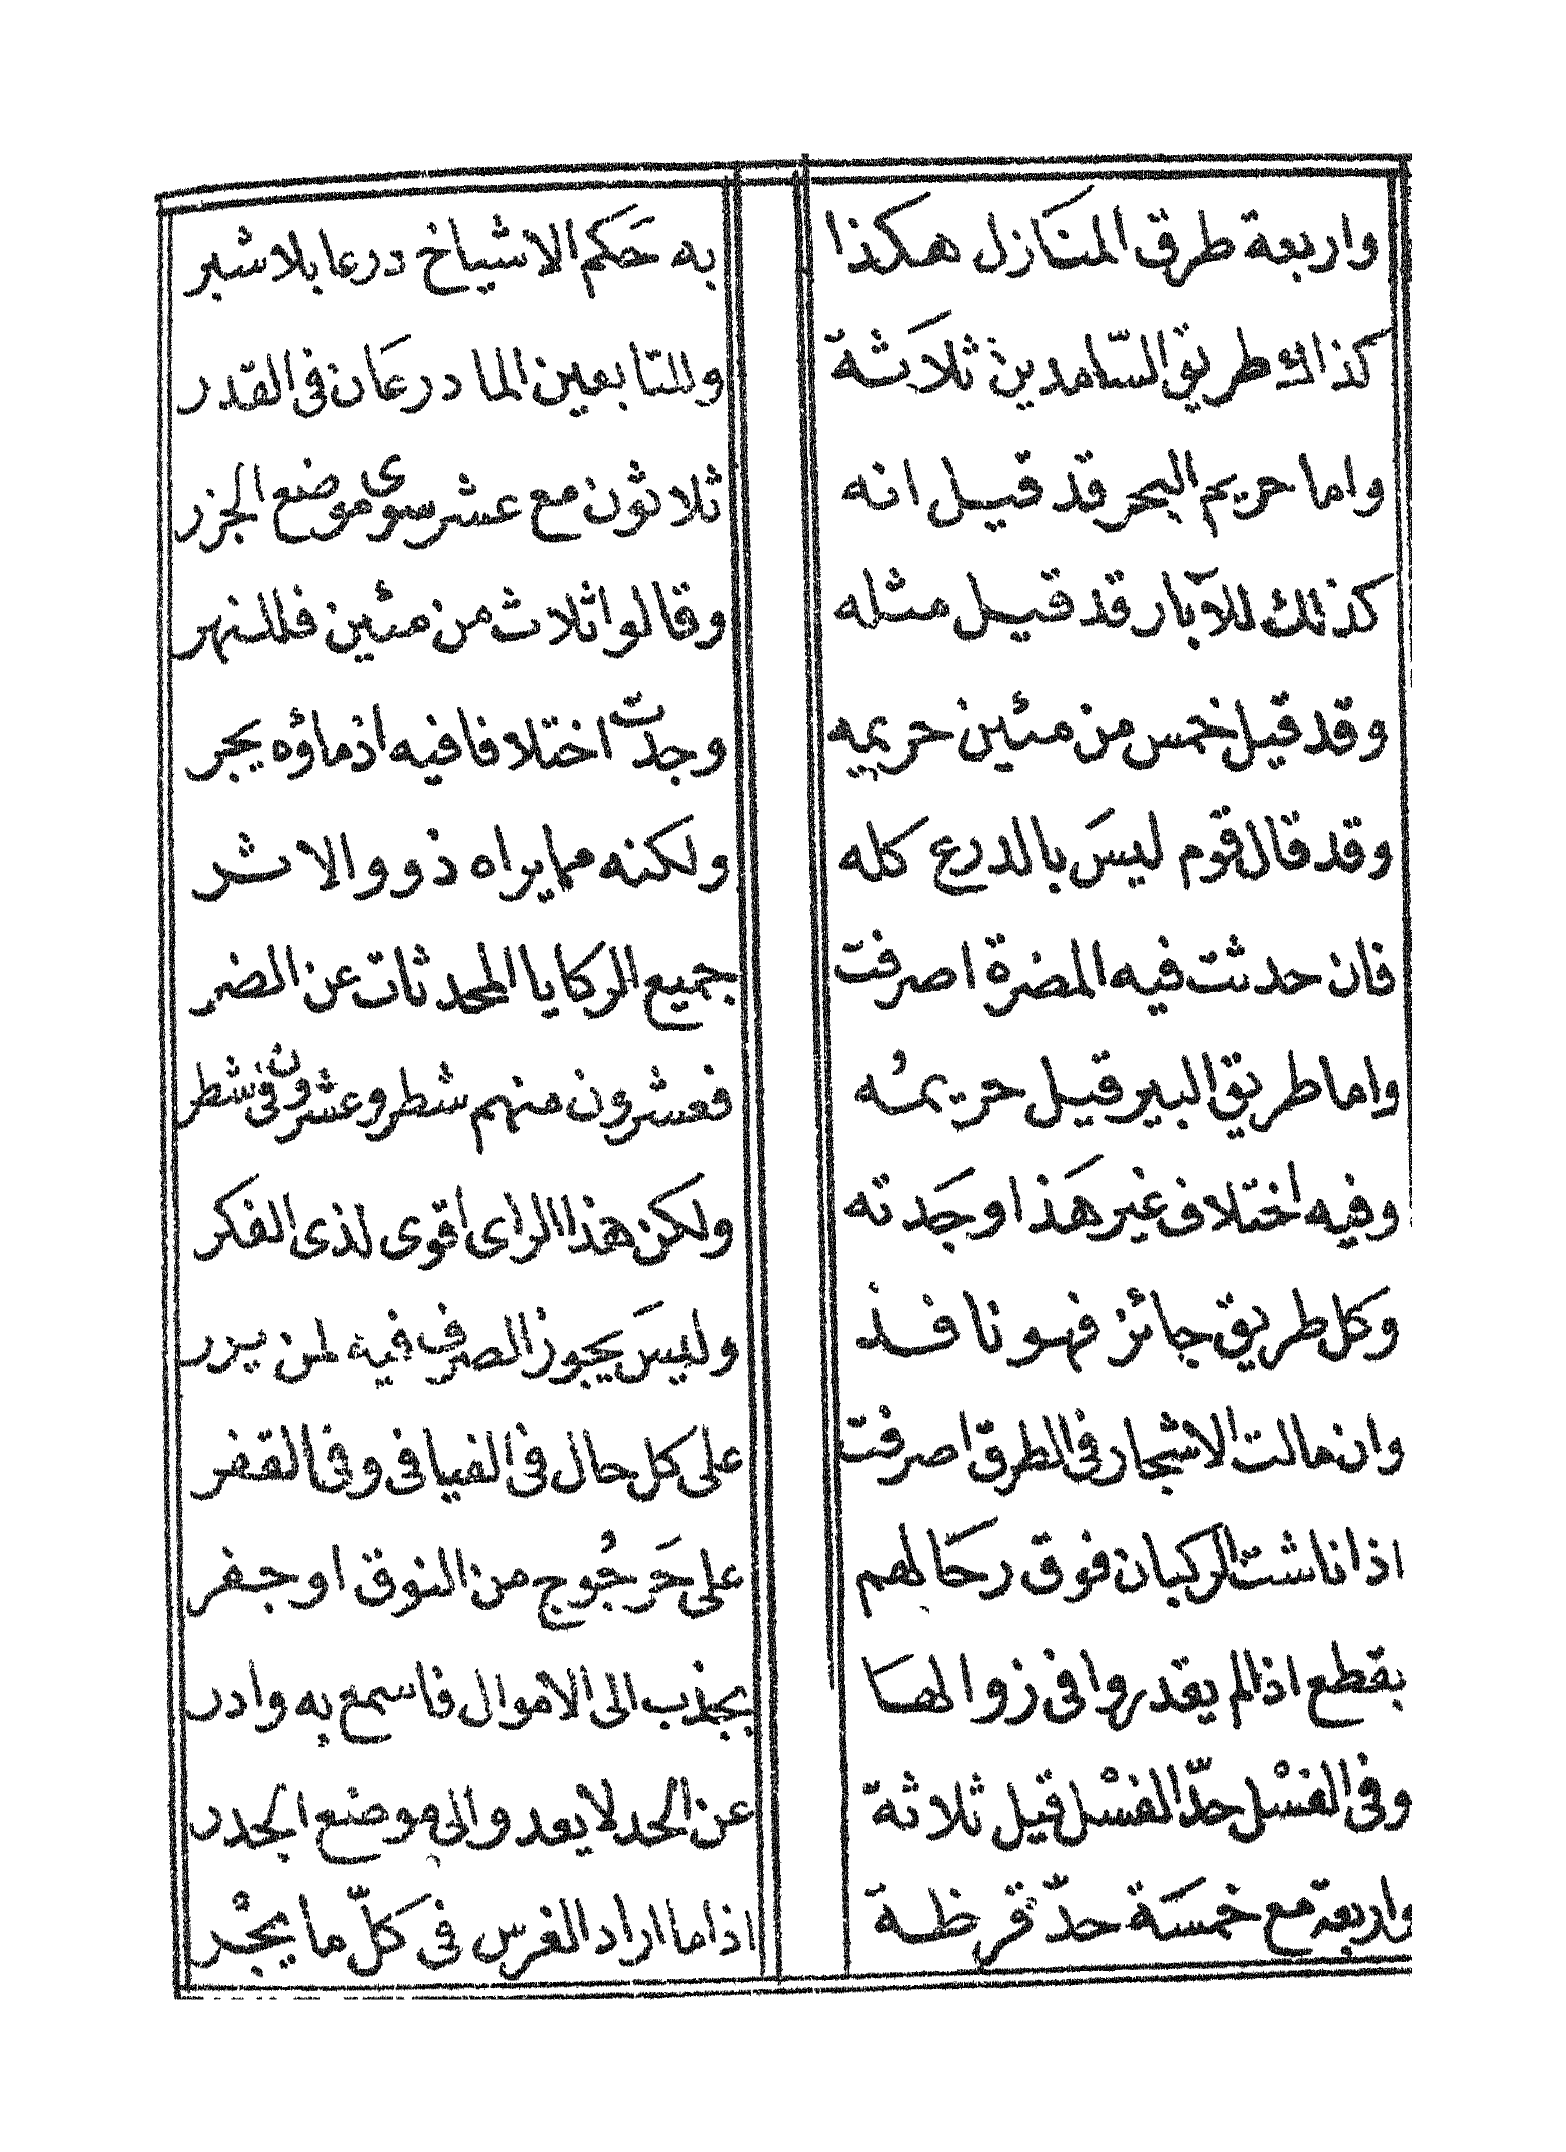 واربعة طرق المنَازل هكذا به حَكم الاشياخ درعا بلا شبر
كذاك طريق السّامدين ثلاَثة وللتابعين الما درعَان فى القدر
واما حريم البحر قد قيل انه ثلاثون مع عشر سوى موضع الجزر
كذلك للآبار قد قيل مثله وقالوا ثلاث من مئين فللنهر
وقد قيل خمس من مئين حريمه وجدت اختلافا فيه اذ ماؤه يجر
وقد قال قوم ليسَ بالدرع كله ولكنه مما يراه ذوو الاثر
فان حدثت فيه المضرة اصرفت جميع الركايا المحدثات عن الضر
واما طريق البير قيل حريمُه فعشرون منهم شطر وعشرون فى شطر
وفيه اختلاف غير هَذا وجَدته ولكن هذا الراى اقوى لذى الفكر
وكل طريق جائز فهو نافذ وليسَ يجوز الصرف فيه لمن يزر
وان مالت الاشجار فى الطرق اصرفت على كل حال فى الفيافى وفى القفر
اذا ناشت الركبان فوق رحَالهم على حَرجُوج من النوق او جفر
بقطع اذا لم يقدروا فى زوالهَا بجذب الى الاموال فاسمع به وادر
وفى الفسْل حدّ الفسْل قيل ثلاثة عن الحد لا يعد والى موضع الجدر
واربعة مع خمسَة حدّ قرظة اذا ما اراد الغرس فى كلّ ما يجْر